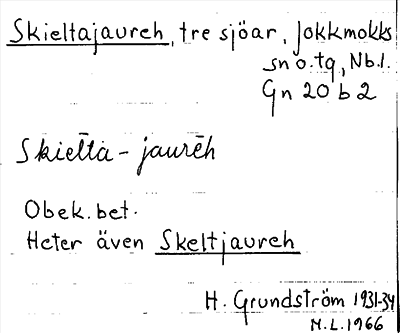 Skieltajaureh, tre sjöar, Jokkmokks
sn o. tg, Nb.l.
Gn 20 b 2
Skiel̄ta-jaurēh
Obek. bet.
Heter även Skeltjaureh
H. Grundström 1931-34
M.L. 1966